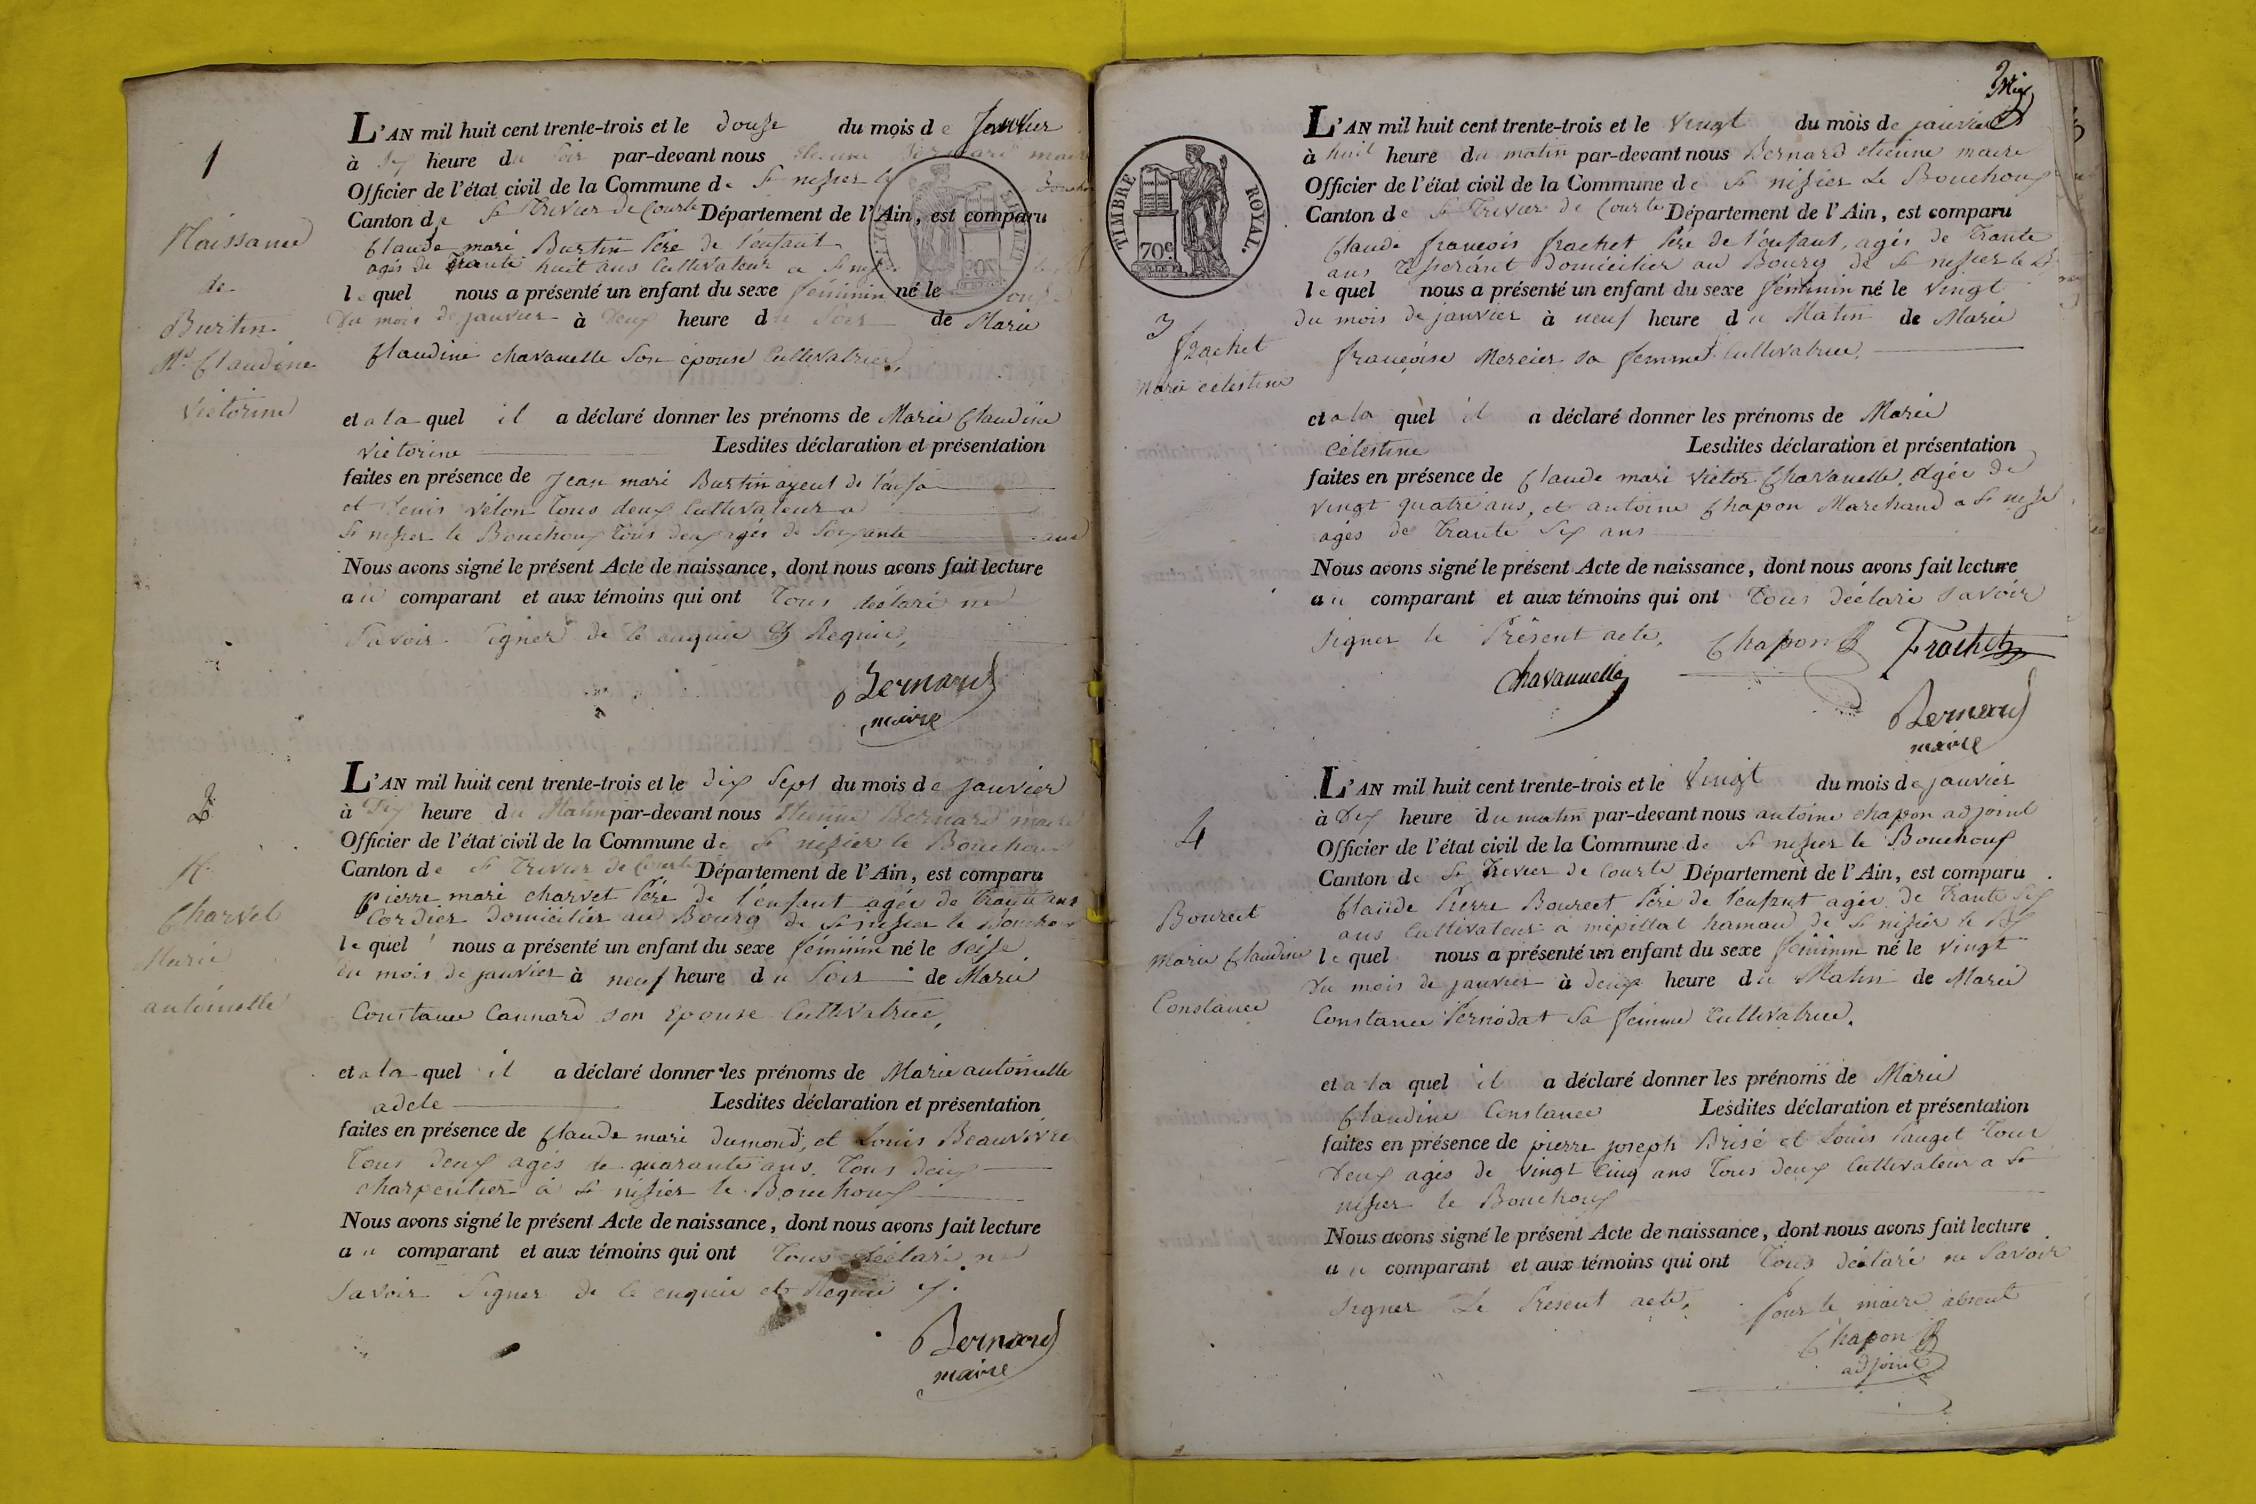 1
Naissance
de
Burtin
Mie Claudine
victorine
L'AN mil huit cent trente-trois et le douze du mois de Janvier
à six heure du soir par-devant nous Etienne Bernard maire
Officier de l'état civil de la Commune de St nizier le Bouchoux
Canton de St Trivier de Courte Département de l'Ain, est comparu
Claude marie Burtin Père de l'enfant
agés de trante huit ans Cultivateur a St niz
lequel nous a présenté un enfant du sexe féminin né le douze
Du mois de janvier à Deux heure du Soir de Marie
Claudine chavanelle Son épouse Cultivatrice,
et a la quel il a déclaré donner les prénoms de Marie Claudine
victorine Lesdites déclaration et présentation
faites en présence de Jean marie Burtin ayeul de l'enfa
et Denis vélon Tous deux Cultivateur a
St nizier le Bouchoux Tous deux agés de Soixante ans
Nous avons signé le présent Acte de naissance, dont nous avons fait lecture
au comparant et aux témoins qui ont Tous déclaré ne
Savoir Signer de ce enquis & Requis,
Bernard
maire
2
N.
Charvet
Marie
antoinette
L'AN mil huit cent trente-trois et le dix Sept du mois de janvier
à Dix heure du Matin par-devant nous Etienne Bernard maire
Officier de l'état civil de la Commune de St nizier le Bouchoux
Canton de St Trivier de Courte Département de l'Ain, est comparu
pierre marie charvet Père de l'enfant agée de trante ans
Cordier domicilier au Bourg de St nizier le Bouchoux
lequel nous a présenté un enfant du sexe féminin né le seize
du mois de janvier à neuf heure du Soir de Marie
Constance Cannard son Epouse Cultivatrice,
et a la quel il a déclaré donner les prénoms de Marie antoinette
adele Lesdites déclaration et présentation
faites en présence de Claude marie dumond, et Louis Beauvivre
Tous deux agés de quarante ans. Tous deux
charpentier à St nizier le Bouchoux
Nous avons signé le présent Acte de naissance, dont nous avons fait lecture
au comparant et aux témoins qui ont Tous déclaré ne
Savoir Signer de ce enquis et Requis
Bernard
maire
TIMBRE ROYAL.
70c
3
frachet
marie celestine
L'AN mil huit cent trente-trois et le vingt du mois de janvier
à huit heure du matin par-devant nous Bernard etienne maire
Officier de l'état civil de la Commune de St nizier Le Bouchoux
Canton de St Trivier de Courte Département de l'Ain, est comparu
Claude françois frachet Père de l'enfant, agés de Trante
ans domicilier au Bourg de St nizier le B
lequel nous a présenté un enfant du sexe féminin né le vingt
du mois de janvier à neuf heure du Matin de Marie
françoise Mercier sa femme Cultivatrice,
et a la quel il a déclaré donner les prénoms de Marie
Célestine Lesdites déclaration et présentation
faites en présence de Claude marie victor Chavanelle, agée de
vingt quatre ans, et antoine Chapon Marchand a St nizie
agés de trante Six ans
Nous avons signé le présent Acte de naissance, dont nous avons fait lecture
au comparant et aux témoins qui ont Tous déclaré Savoir
Signer le Présent acte,
Chapon
Frachet
Chavannelle
Bernard
maire
4
Bourect
marie Claudine
Constance
L'AN mil huit cent trente-trois et le Vingt du mois de janvier
à Dix heure du matin par-devant nous antoine chapon adjoint
Officier de l'état civil de la Commune de St nizier le Bouchoux
Canton de St Trivier de Courte Département de l'Ain, est comparu
Claude Pierre Bourect Père de l'enfant agée de Trante Six
ans Cultivateur a mépillat hamau de St nizier le Bx
lequel nous a présenté un enfant du sexe féminin né le vingt
Du mois de janvier à deux heure du Matin de Marie
Constance Pernodat Sa femme Cultivatrice.
et a la quel il a déclaré donner les prénoms de Marie
Claudine Constance Lesdites déclaration et présentation
faites en présence de pierre joseph Brisé et Louis Pauget Tous
Deux agés de vingt Cinq ans Tous deux Cultivateur a St
nizier le Bouchoux
Nous avons signé le présent Acte de naissance, dont nous avons fait lecture
au comparant et aux témoins qui ont Tous déclaré ne Savoir
Signer Le Présent acte,
Pour le maire absent
Chapon
adjoint